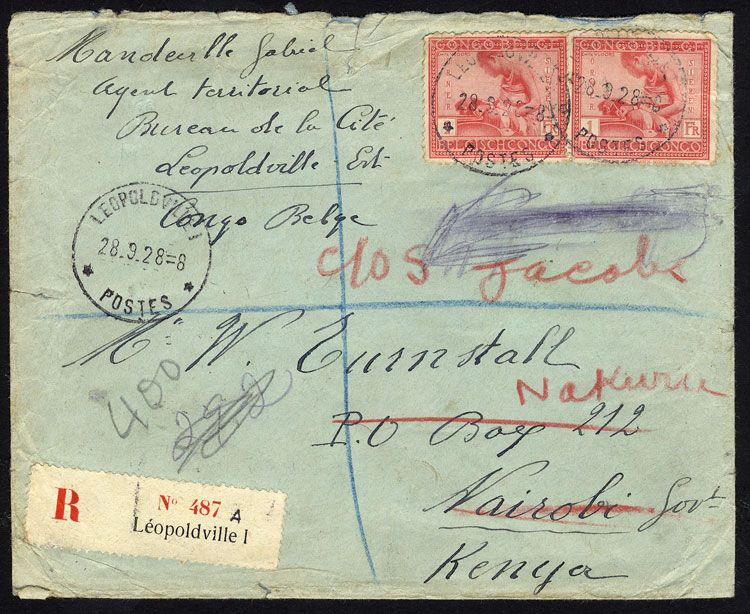 Mandeville Gabriel
Agent territorial
Bureau de la Cité
Léopoldville - Est
Congo Belge
CONGO BELGE
1 FR
BELGISCH CONGO
CONGO BELGE
1 FR
BELGISCH CONGO
LEOPOLDVILLE 1
28.9.28=8
POSTES
28.9.28=8
POSTES
LEOPOLDVILLE 1
28.9.28=8
POSTES
c/o S Jacobs
Mr W. Turnstall
Nakuru
P.O Box 212
Nairobi Govt
Kenya
400
R
No 487 A
Léopoldville 1